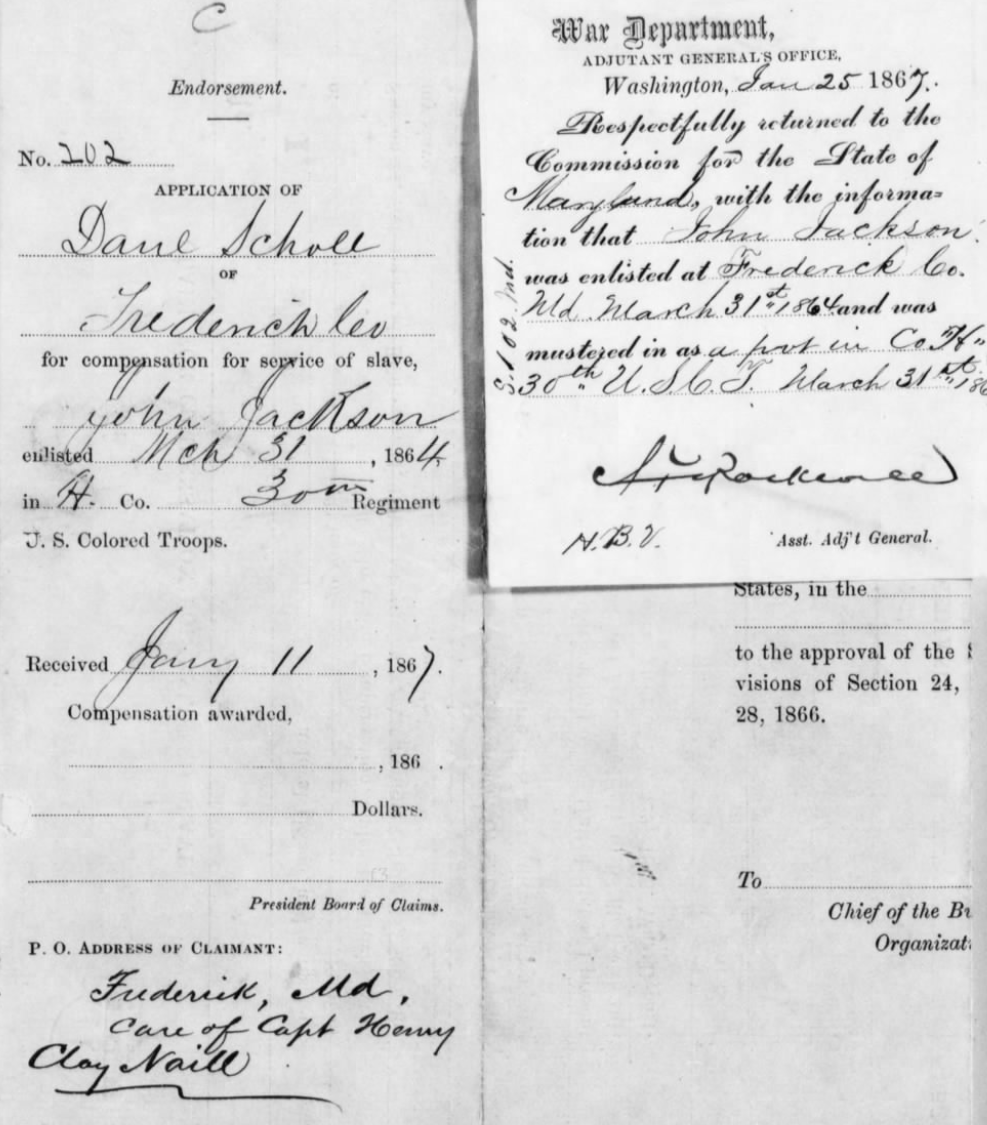 C
Endorsement.
No. 202
APPLICATION OF
Danl Scholl
OF
Frederick Co
for compensation for service of slave,
John Jackson
enlisted Mch 31, 1864
in H. Co. 30th Regiment
U. S. Colored Troops.
Received Jany 11, 1867.
Compensation awarded,
, 186 .
Dollars.
President Board of Claims.
P. O. ADDRESS OF CLAIMANT:
Frederick, Md,
Care of Capt Henry
Clay Naill
War Department,
ADJUTANT GENERAL'S OFFICE,
Washington, Jan 25 1867.
Respectfully returned to the
Commission for the State of
Maryland, with the informa=
tion that John Jackson
was enlisted at Frederick Co.
Md. March 31st 1864 and was
mustered in as a pvt in Co "H"
30th U. S. C. T. March 31st 186
S. 102. Md.
H. B. V.
Asst. Adj't General.
States, in the
to the approval of the S
visions of Section 24,
28, 1866.
To
Chief of the Bu
Organizat